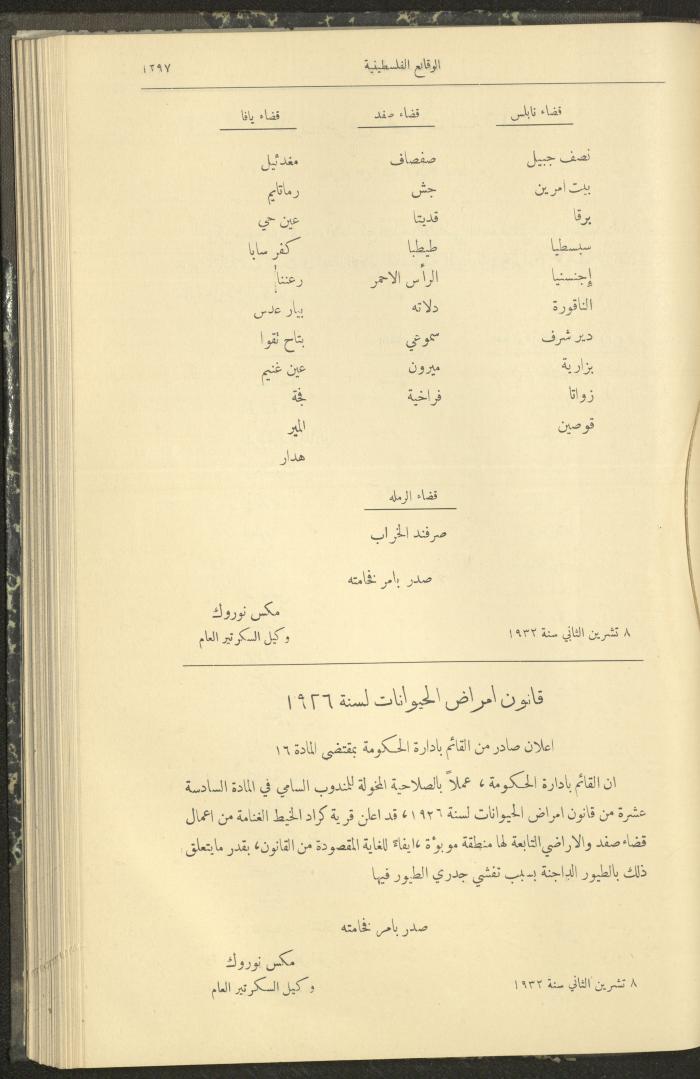 الوقائع الفلسطينية ١٢٩٧
قضاء نابلس قضاء صفد قضاء يافا
نصف جبيل صفصاف مغدئيل
بيت امرين جش رماتايم
برقا قديتا عين حي
سبسطيا طيطبا كفر سابا
إجنسنيا الرأس الاحمر رعننا
الناقورة دلاته بيار عدس
دير شرف سموعي بتاح تقوا
بزارية ميرون عين غنيم
زواتا فراخية فجة
قوصين المير
هدار
قضاء الرمله
صرفند الخراب
صدر بامر فخامته
مكس نوروك
٨ تشرين الثاني سنة ١٩٣٢ وكيل السكرتير العام
قانون امراض الحيوانات لسنة ١٩٢٦
اعلان صادر من القائم بادارة الحكومة بمقتضى المادة ١٦
ان القائم بادارة الحكومة ، عملاً بالصلاحية المخولة للمندوب السامي في المادة السادسة
عشرة من قانون امراض الحيوانات لسنة ١٩٢٦، قد اعلن قرية كراد الخيط الغنامة من اعمال
قضاء صفد والاراضي التابعة لها منطقة موبؤة ،ايفاءً للغاية المقصودة من القانون، بقدر ما يتعلق
ذلك بالطيور الداجنة بسبب تفشي جدري الطيور فيها
صدر بامر فخامته
مكس نوروك
٨ تشرين الثاني سنة ١٩٣٢ وكيل السكرتير العام